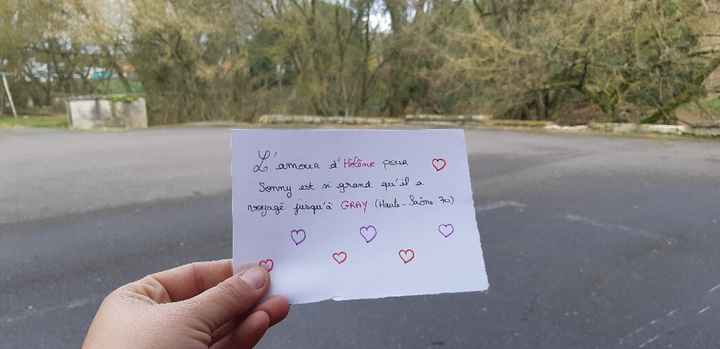 L'amour d'Hélène pour
Sonny est si grand qu'il a
voyagé jusqu'à GRAY (Haute-Saône 70)